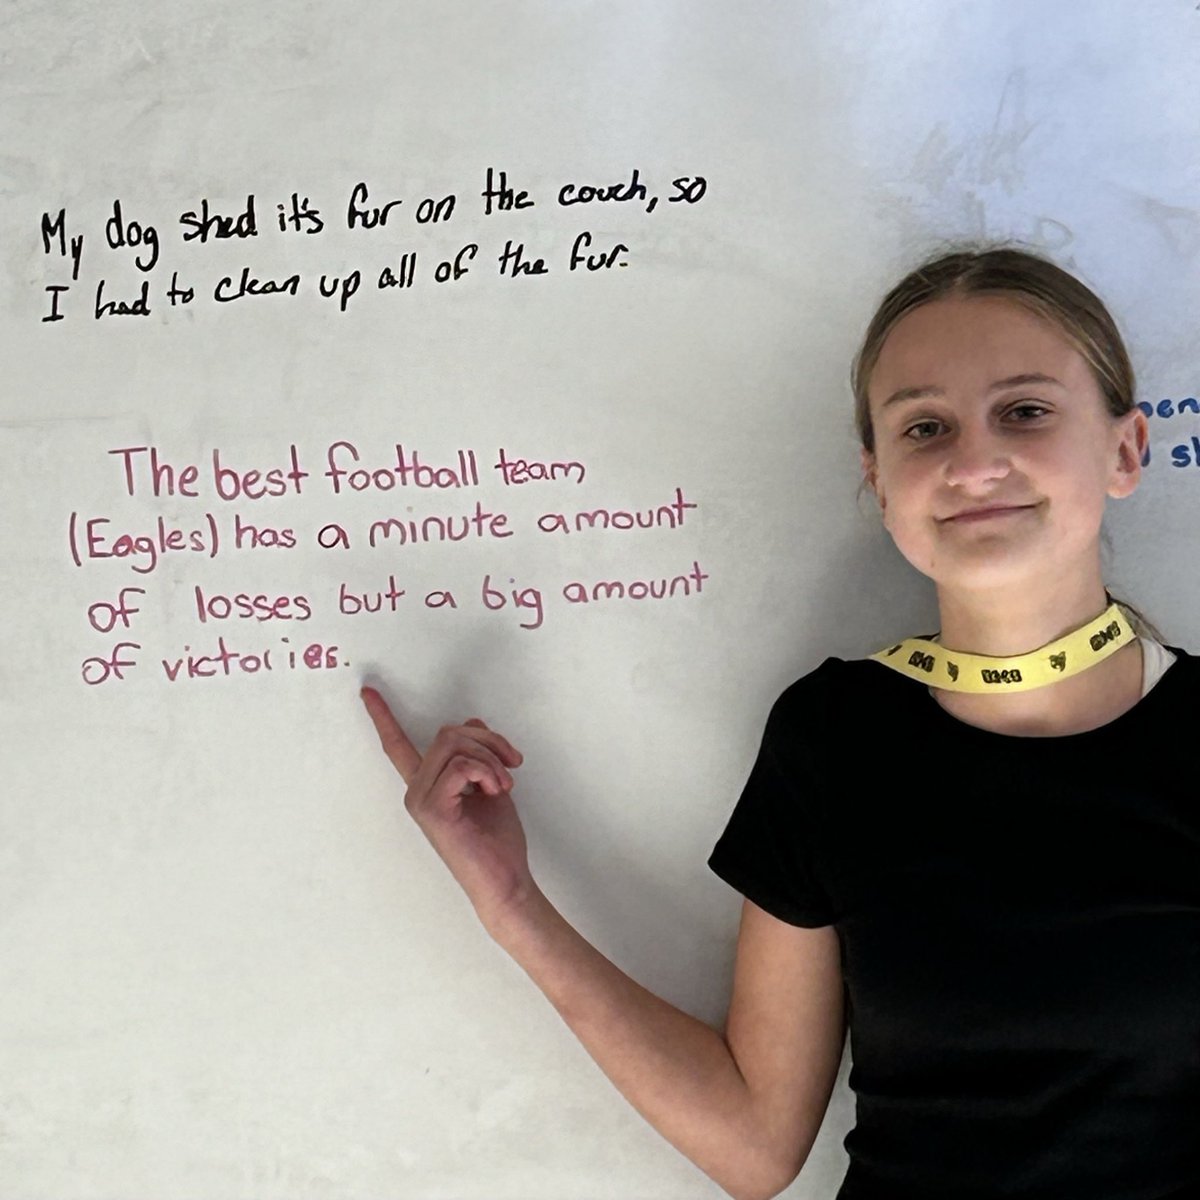 My dog shed it's fur on the couch, so
I had to clean up all of the fur.
The best football team
(Eagles) has a minute amount
of losses but a big amount
of victories.